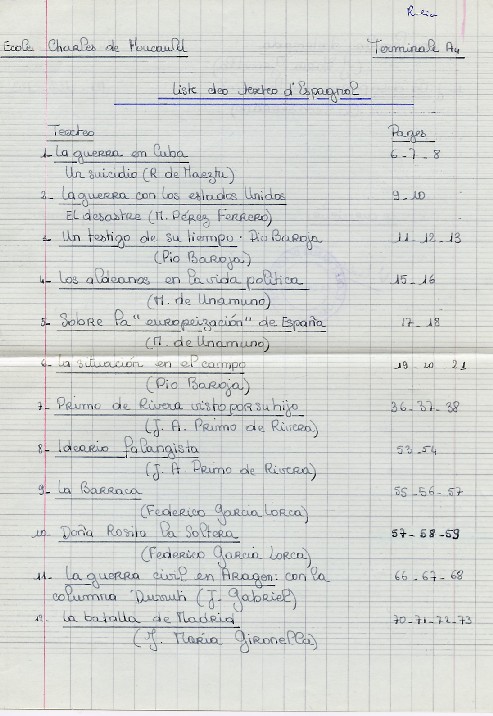 Ecole Charles de Foucauld Terminale A4
Liste des textes d'Espagnol
Textes Pages
1- La guerra en Cuba 6-7-8
Un suicidio (R de Maeztu)
2- La guerra con los estados Unidos 9-10
El desastre (M. Pérez Ferrero)
3- Un testigo de su tiempo. Pio Baroja 11-12-13
(Pio Baroja)
4- Los aldeanos en la vida politica 15-16
(M. de Unamuno)
5- Sobre la "europeización" de España 17-18
(M. de Unamuno)
6- La situación en el campo 19 - 20 - 21
(Pio Baroja)
7- Primo de Rivera visto por su hijo 36-37-38
(J. A. Primo de Rivera)
8- Ideario falangista 53-54
(J. A Primo de Rivera)
9- La Barraca 55-56-57
(Federico Garcia Lorca)
10- Doña Rosita la Soltera 57-58-59
(Federico Garcia Lorca)
11- La guerra civil en Aragon: con la 66-67-68
columna Durruti (J. Gabriel)
12- La batalla de Madrid 70-71-72-73
(J. María Gironella)